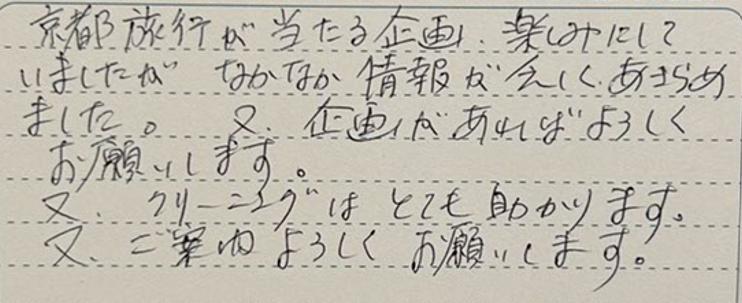 京都旅行が当たる企画、楽しみにして
いましたが なかなか情報が乏しく、あきらめ
ました。 又、企画があればよろしく
お願いします。
又、クリーニングはとても助かります。
又、ご案内よろしくお願いします。